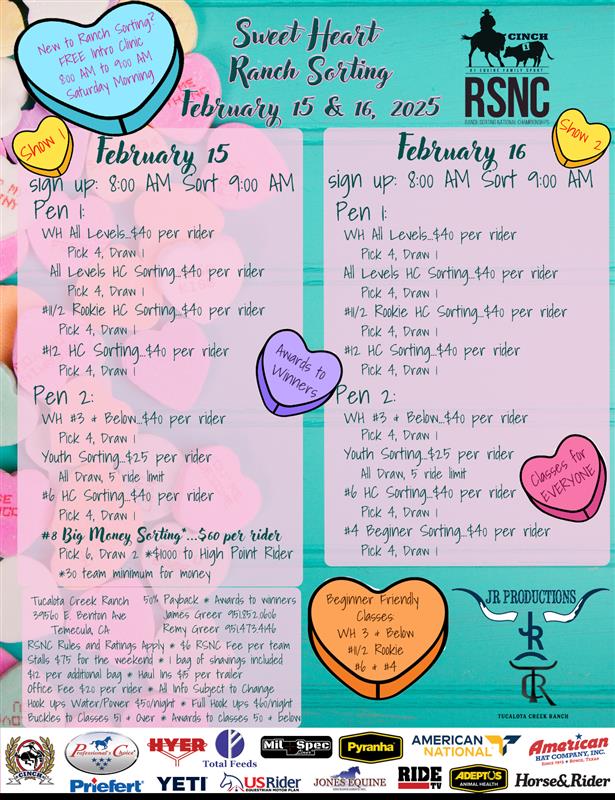 New to Ranch Sorting?
FREE Intro Clinic
8:00 AM to 9:00 AM
Saturday Morning
Sweet Heart
Ranch Sorting
February 15 & 16, 2025
CINCH
#1 EQUINE FAMILY SPORT
RSNC
RANCH SORTING NATIONAL CHAMPIONSHIPS
Show 1
February 15
sign up: 8:00 AM Sort 9:00 AM
Pen 1:
WH All Levels...$40 per rider
Pick 4, Draw 1
All Levels HC Sorting...$40 per rider
Pick 4, Draw 1
#11/2 Rookie HC Sorting...$40 per rider
Pick 4, Draw 1
#12 HC Sorting...$40 per rider
Pick 4, Draw 1
Pen 2:
WH #3 & Below...$40 per rider
Pick 4, Draw 1
Youth Sorting...$25 per rider
All Draw, 5 ride limit
#6 HC Sorting...$40 per rider
Pick 4, Draw 1
#8 Big Money Sorting*...$60 per rider
Pick 6, Draw 2 *$1000 to High Point Rider
*30 team minimum for money
Show 2
February 16
sign up: 8:00 AM Sort 9:00 AM
Pen 1:
WH All Levels...$40 per rider
Pick 4, Draw 1
All Levels HC Sorting...$40 per rider
Pick 4, Draw 1
#11/2 Rookie HC Sorting...$40 per rider
Pick 4, Draw 1
#12 HC Sorting...$40 per rider
Pick 4, Draw 1
Pen 2:
WH #3 & Below...$40 per rider
Pick 4, Draw 1
Youth Sorting...$25 per rider
All Draw, 5 ride limit
#6 HC Sorting...$40 per rider
Pick 4, Draw 1
#4 Beginer Sorting...$40 per rider
Pick 4, Draw 1
Awards to
Winners
Classes for
EVERYONE
Tucalota Creek Ranch 50% Payback * Awards to winners
39560 E. Benton Ave James Greer 951.852.0606
Temecula, CA Remy Greer 951.473.4146
RSNC Rules and Ratings Apply * $6 RSNC Fee per team
Stalls $75 for the weekend * 1 bag of shavings included
$12 per additional bag * Haul Ins $5 per trailer
Office Fee $20 per rider * All Info Subject to Change
Hook Ups Water/Power $50/night * Full Hook Ups $60/night
Buckles to Classes 51 & Over * Awards to classes 50 & below
Beginner Friendly
Classes:
WH 3 & Below
#11/2 Rookie
#6 & #4
JR PRODUCTIONS
JR
TCR
TUCALOTA CREEK RANCH
CINCH
Professional's Choice
HYER
Total Feeds
Mil-Spec
Pyranha
AMERICAN
NATIONAL
American
HAT COMPANY, INC.
Priefert
YETI
USRider
EQUESTRIAN MOTOR PLAN
JONES EQUINE
RIDE
TV
ADEPTUS
ANIMAL HEALTH
Horse&Rider